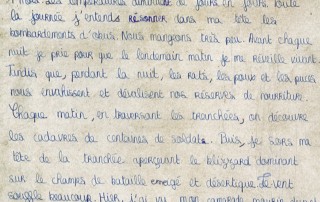 températures diminuent de jours en jours, toute
la journée j'entends résonner dans ma tête les
bombardements d'obus. Nous mangeons très peu. Avant chaque
nuit je prie pour que le lendemain matin je me réveille vivant.
Tandis que, pendant la nuit, les rats, les poux et les puces
nous envahissent et dévalisent nos réserves de nourriture.
Chaque matin, en traversant les tranchées, on découvre
les cadavres de centaines de soldats. Puis, je sors ma
tête de la tranchée aperçevant le blizzard dominant
sur le champs de bataille et désertique. Le vent
souffle beaucoup. Hier, j'ai vu mon camarade mourir